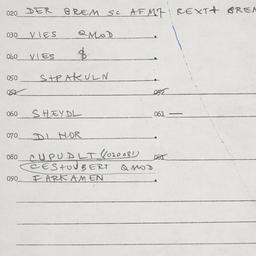 020 DER BREM SC AFM7 REXT+ BREM
030 VIES QMOD
040 VIES $
050 STPAKULN
052 052
060 SHEYDL 061 —
070 DI NOR
080 CUPUDLT (1020081) 085
CESTOUBERT QMOD
090 FARKAMEN